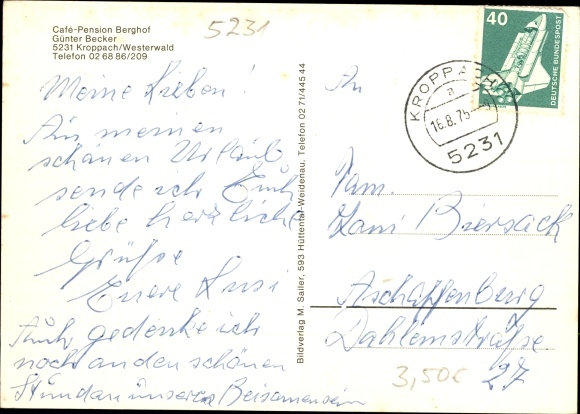 Café-Pension Berghof
Günter Becker
5231 Kroppach/Westerwald
Telefon 02 68 86/209
5231
Meine Lieben!
Aus meinen
schönen Urlaub
sende ich Euch
liebe herzliche
Grüße
Euere Lusi
Auch gedenke ich
noch an den schönen
Stunden unseres Beisamensein
Bildverlag M. Sailer, 593 Hüttental-Weidenau, Telefon 02 71/445 44
40
DEUTSCHE BUNDESPOST
KROPPACH
a
16.8.75
5231
An
Fam.
Hani Biersack
Aschaffenburg
Dahlemstraße
27
3,50€